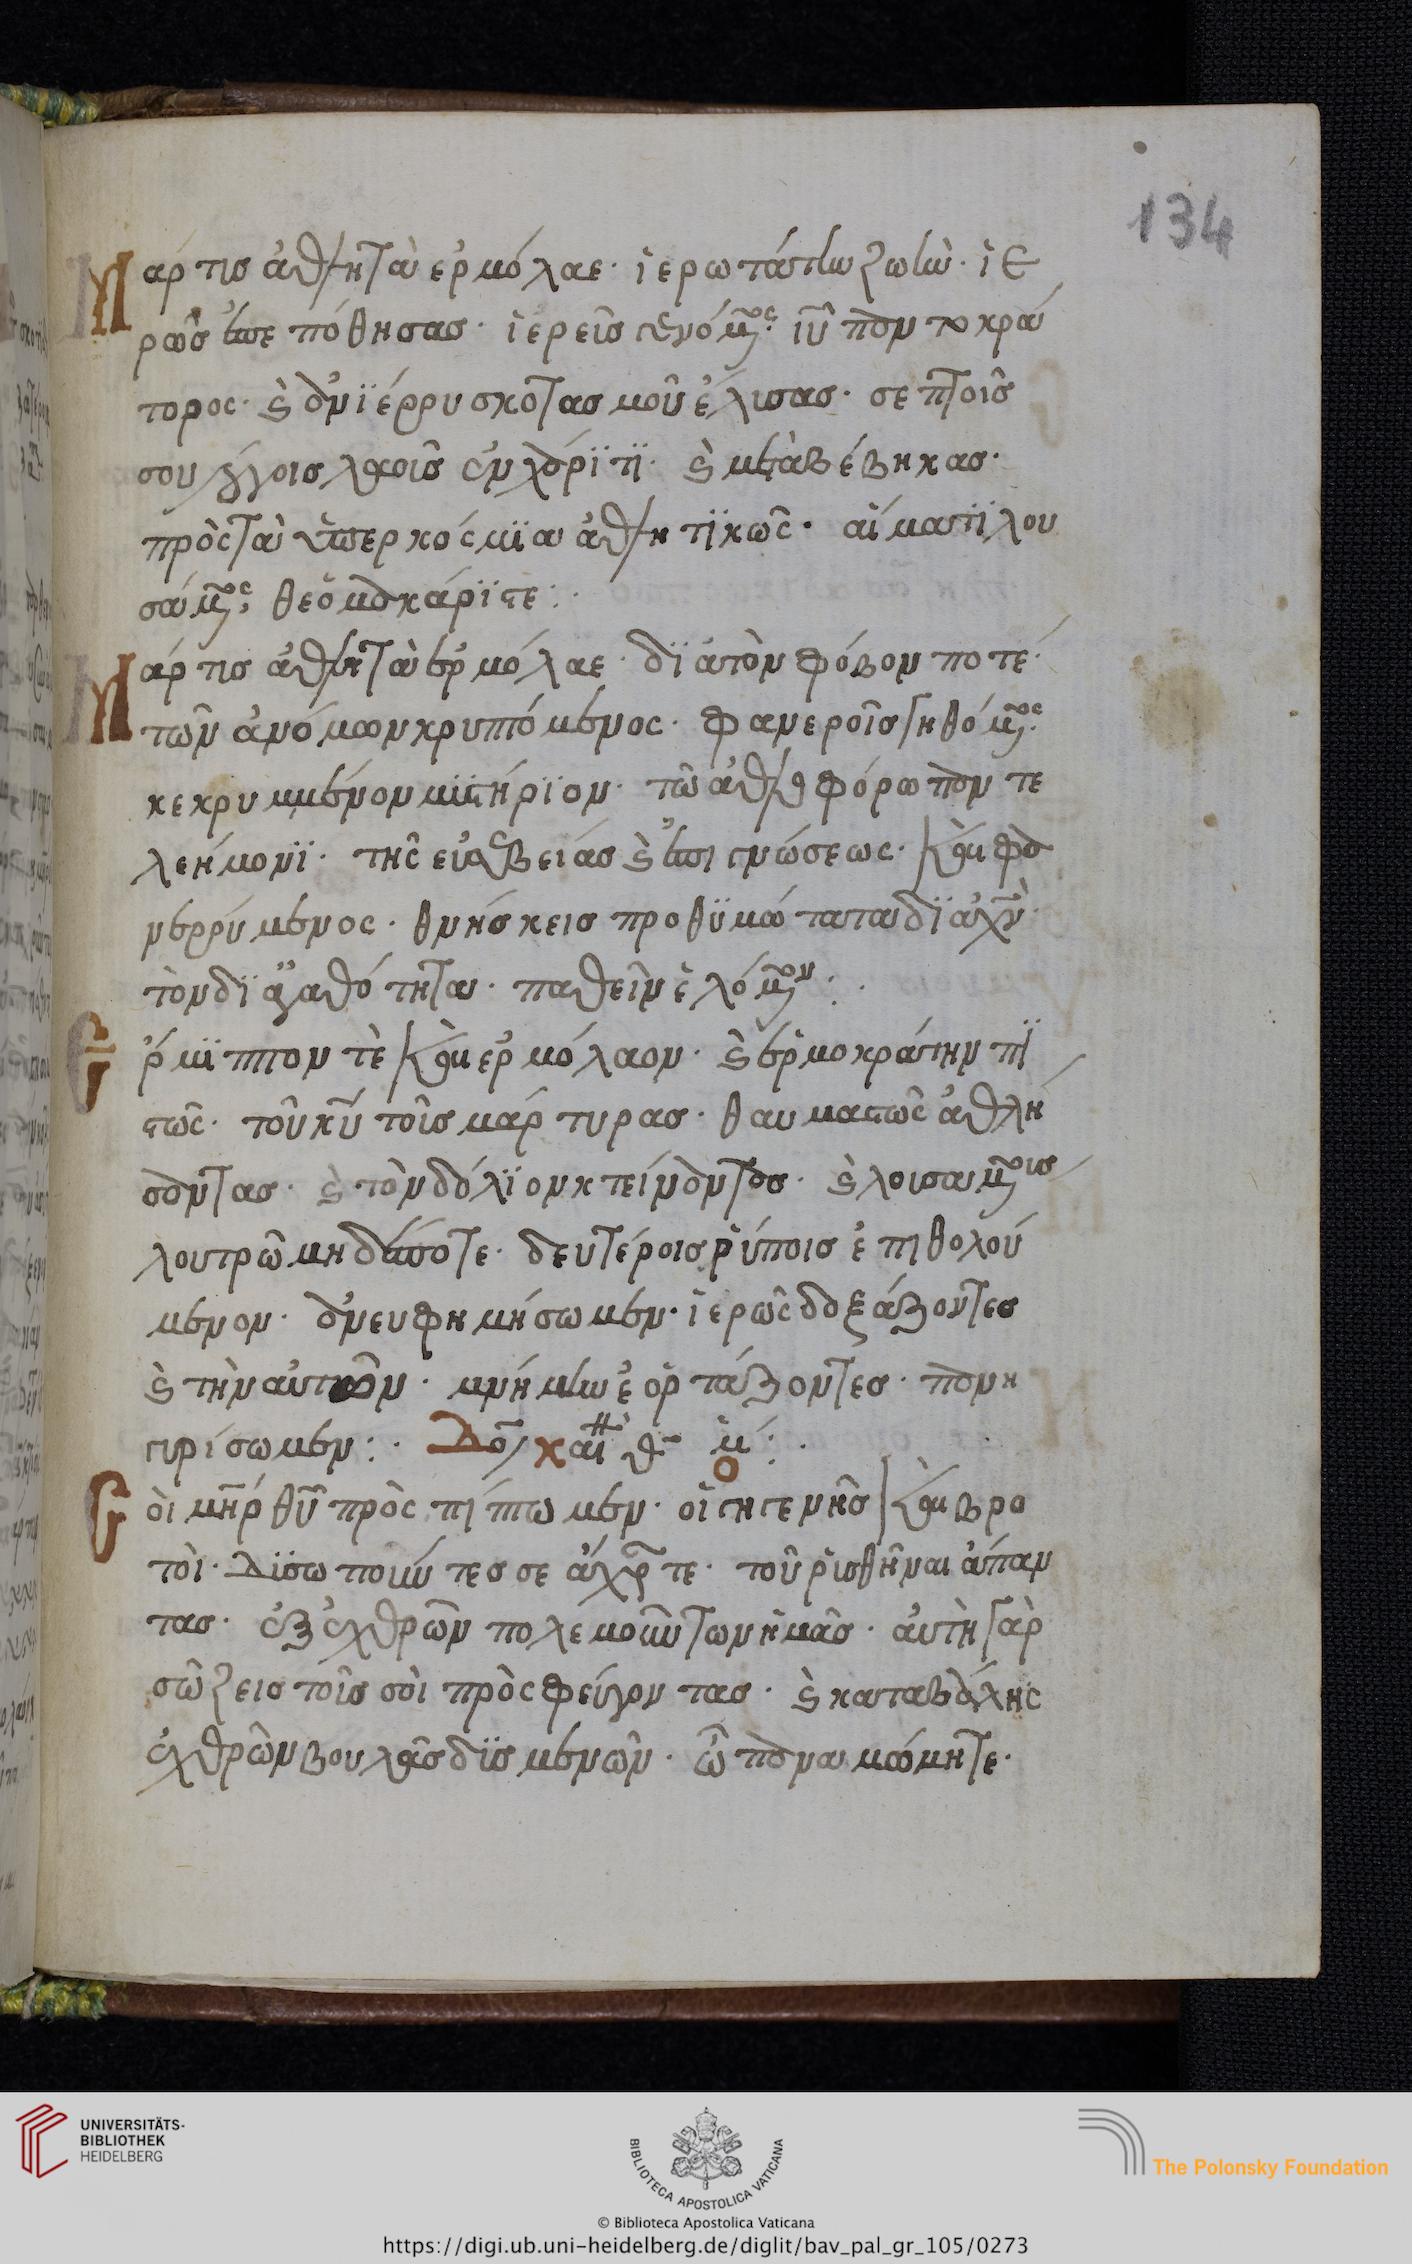 134
Μάρτις ἀθλητὰ ἑρμόλαε· ἱερωτάτην ζωὴν· ἱε
ρῶς ἐπεπόθησας· ἱερεῖς γενόμενος ἰυ παντοκρά
τορος· καὶ
σου λόγοις λαοῖς ἐν χάριτϊ· καὶ μεταβέβηκας·
πρὸς τὰ ὑπερκόσμϊα ἀθλητϊκῶς· αἵματϊ λου
σάμενος θεομακάριστε:·
Μάρτις ἀθλητὰ ἑρμόλαε· δϊὰ τὸν φόβον ποτέ·
τῶν ἀνόμων κρυπτόμενος· φανεροῖς τηθόμενος
κεκρυμμένον μϊστήριον· τῶ ἀθλοφόρω παν τε
λεήμονϊ· τῆς εὐσεβείας καὶ ἐπιγνώσεως· καὶ φα
νερρύμενος· θνήσκεις προθϋμώτατα δϊὰ χν·
τὸν δϊ ἀγαθότητα· παθεῖν ἑλόμενον:·
Ἕρμϊππον τὲ καὶ ἑρμόλαον· καὶ ἑρμοκράτην πϊ
στῶς· τοῦ κυ τοῖς μάρτυρας· θαυμαστῶς ἀθλή
σαντας· καὶ τὸν δόλϊον κτείναντας· καὶ λουσαμένοις
λουτρῶ μηδέποτε· δευτέροις ῥύποις ἐπιθολού
μενον· ἀνευφημήσωμεν· ἱερῶς δοξάζοντες
καὶ τὴν αὐτῶν· μνήμην ἑορτάζοντες· πανη
γυρίσωμεν:· Δόξα καὶ
Σοὶ μηρ θυ πρὸς πίπτωμεν· οἱ γηγενῆς καὶ βρο
τοὶ· Δϊσωποῦντες σε ἄχραντε· τοῦ ῥισθῆναι ἅπαν
τας· ἐξ ἐχθρῶν πολεμούντων ἡμᾶς· αὐτὴ γὰρ
σῶζεις τοῖς σοὶ πρὸς φεύγοντας· καὶ καταβάλης
ἐχθρῶν βουλᾶς δϊσμενῶν· ὦ πάναμώμητε·
UNIVERSITÄTS-
BIBLIOTHEK
HEIDELBERG
BIBLIOTECA APOSTOLICA VATICANA
© Biblioteca Apostolica Vaticana
The Polonsky Foundation
https://digi.ub.uni-heidelberg.de/diglit/bav_pal_gr_105/0273